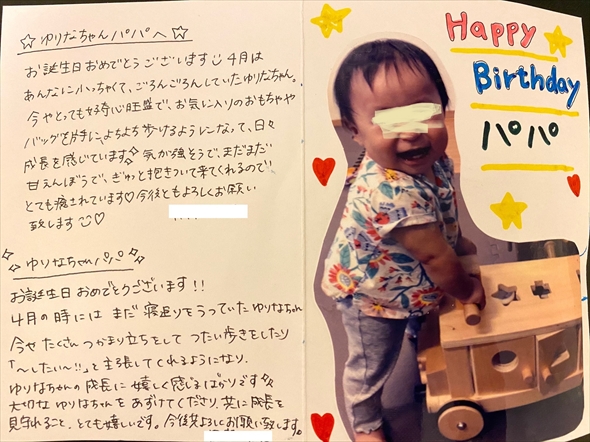 ☆ゆりなちゃんパパへ☆
お誕生日おめでとうございます 4月は
あんなに小っちゃくて、ごろんごろんしていたゆりなちゃん。
今やとっても好奇心旺盛で、お気に入りのおもちゃや
バッグを片手に、よちよち歩けるようになって、日々
成長を感じています 気が強そうで、まだまだ
甘えんぼうで、ぎゅっと抱きついて来てくれるので
とても癒されています♡今後ともよろしくお願い
致します ♡
ゆりなちゃんパパへ
お誕生日おめでとうございます!!
4月の時にはまだ寝返りをうっていたゆりなちゃん
今やたくさんつかまり立ちをしてつたい歩きをしたり
「〜したい〜!!」と主張してくれるようになり、
ゆりなちゃんの成長に嬉しく感じるばかりです
大切なゆりなちゃんをあずけてくださり、共に成長を
見守れること、とても嬉しいです。今後ともよろしくお願い致します。
Happy
Birthday
パパ